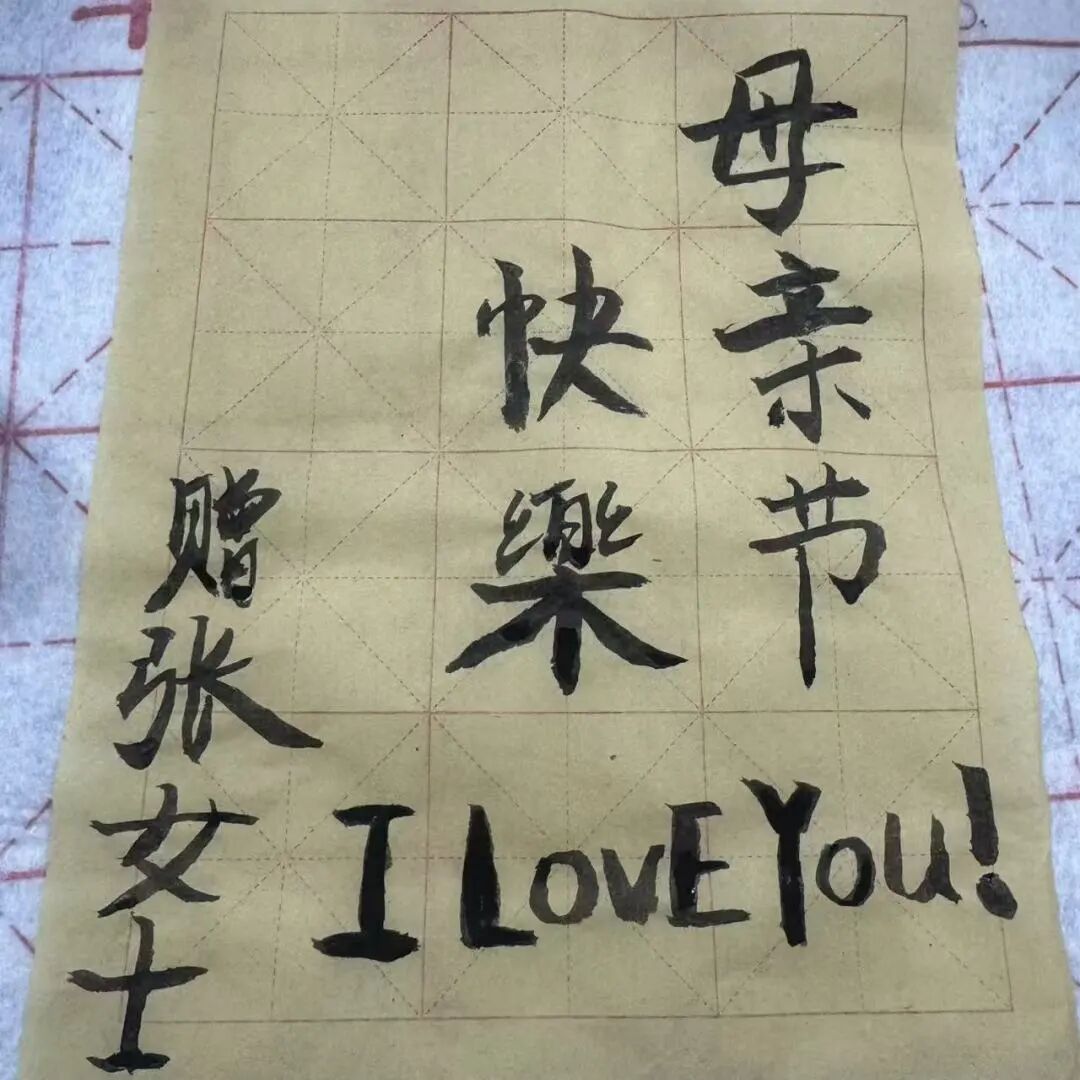 母亲节
快樂
赠张女士
I LOVE YOU!